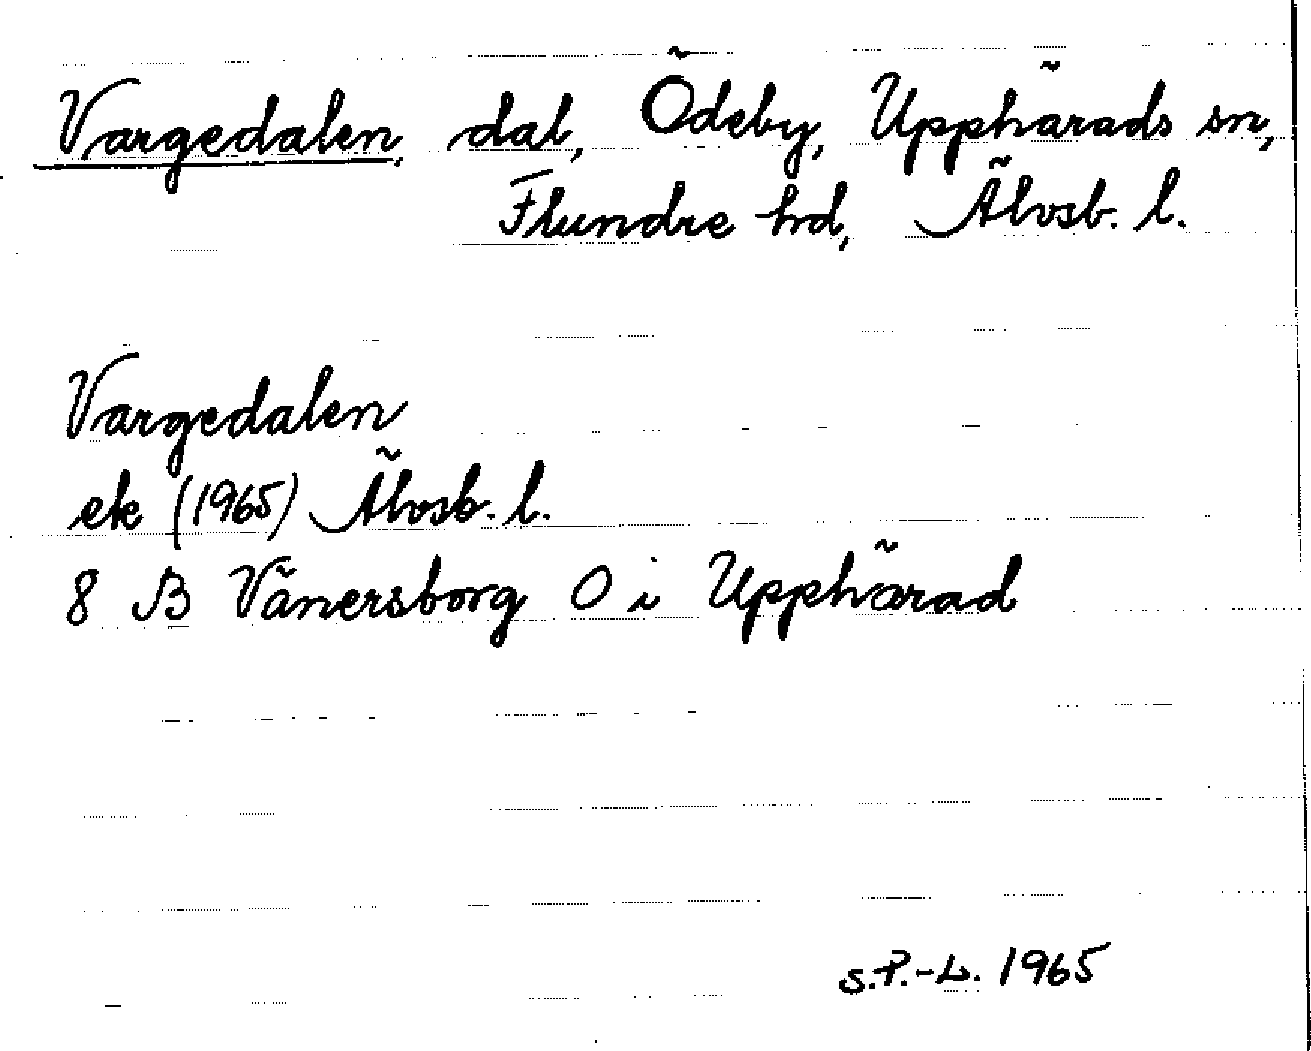 Vargedalen, dal, Ödeby, Upphärads sn,
Flundre hd, Älvsb. l.
Vargedalen
ek (1965) Älvsb. l.
8 B Vänersborg O i Upphärad
S.P.-L. 1965